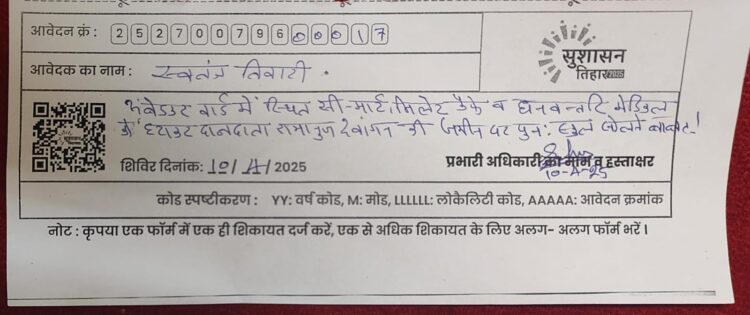 आवेदन क्रं : 25270079600017
सुशासन
तिहार 2025
आवेदक का नाम : स्वतंत्र तिवारी .
अंबेडकर वार्ड में स्थित सी-मार्ट, मिलेट कैफे व धनवन्तरि मेडिकल
को हटाकर दानदाता रामानुज देवांगन की जमीन पर पुन: स्कूल खोलने बाबत् !
शिविर दिनांक: 10/A/2025
प्रभारी अधिकारी का नाम व हस्ताक्षर
10-A-25
कोड स्पष्टीकरण : YY: वर्ष कोड, M: मोड, LLLLLL: लोकैलिटी कोड, AAAAA: आवेदन क्रमांक
नोट : कृपया एक फॉर्म में एक ही शिकायत दर्ज करें, एक से अधिक शिकायत के लिए अलग- अलग फॉर्म भरें ।